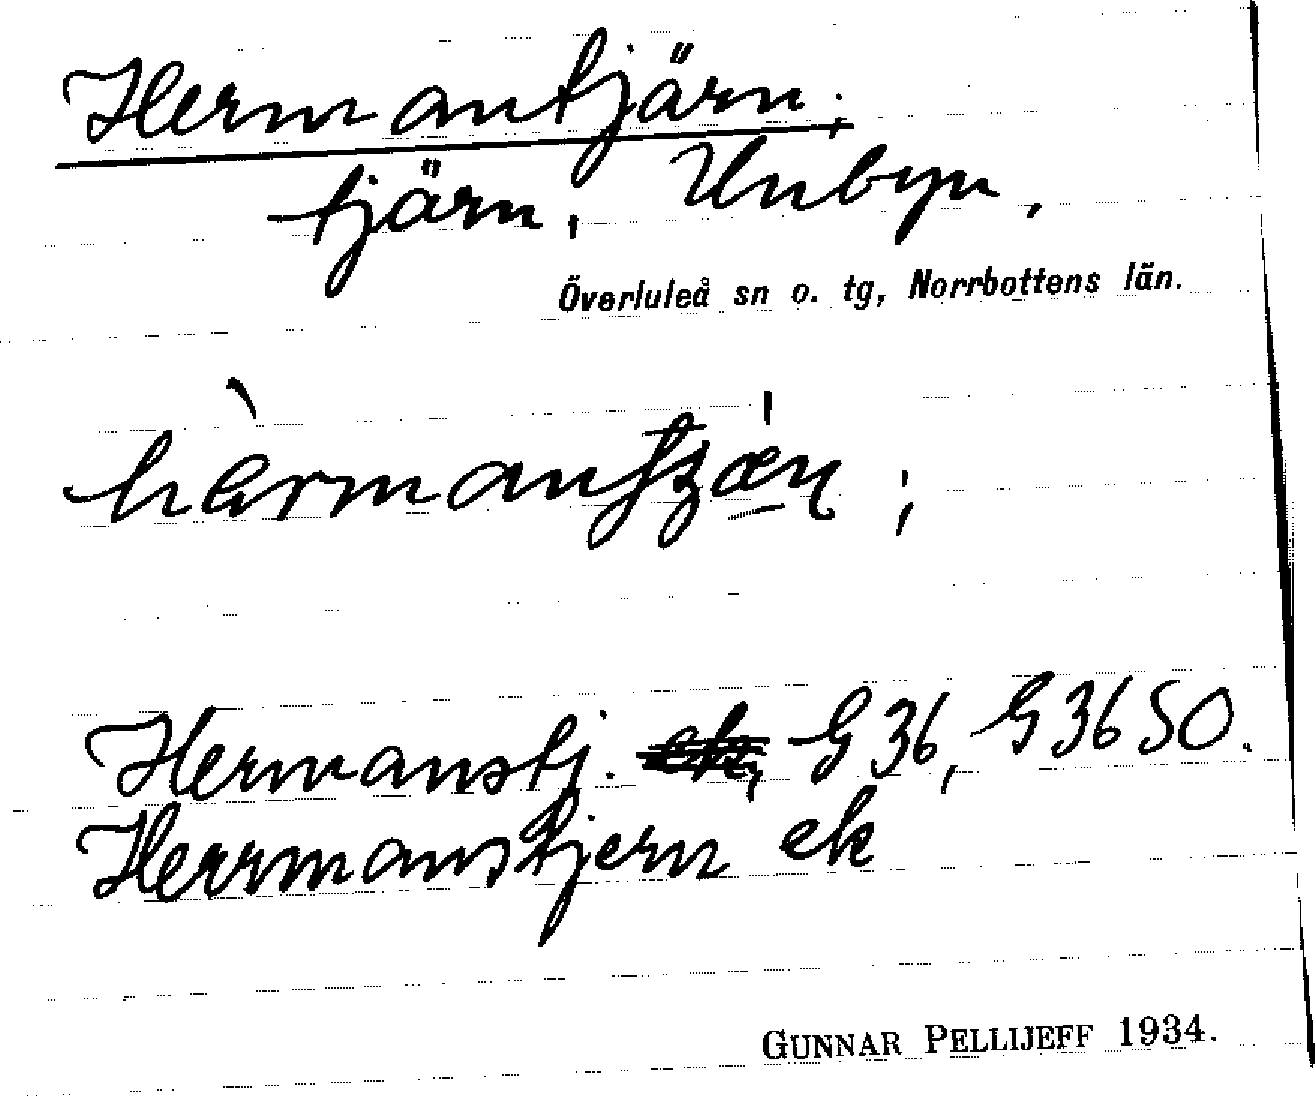 Hermantjärn,
tjärn, Unbyn,
Överluleå sn o. tg, Norrbottens län.
Hermanstj. G 36, G 36 SO.
Herrmanstjern ek
GUNNAR PELLIJEFF 1934.